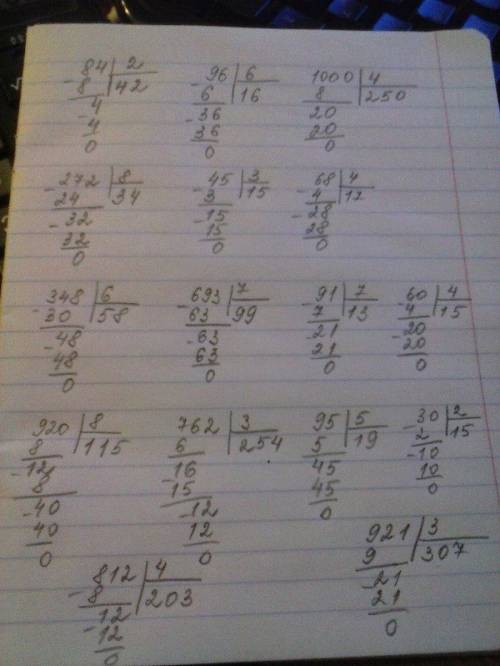 -84 | 2    -96 | 6    1000 | 4
8 | 42    6 | 16    8 | 250
-4    -36    20
4    36    20
0    0    0
-272 | 8    -45 | 3    -68 | 4
24 | 34    3 | 15    4 | 17
-32    -15    -28
32    15    28
0    0    0
-348 | 6    -693 | 7    -91 | 7    -60 | 4
30 | 58    63 | 99    7 | 13    4 | 15
-48    -63    -21    -20
48    63    21    20
0    0    0    0
920 | 8    762 | 3    95 | 5    -30 | 2
8 | 115    6 | 254    5 | 19    2 | 15
-12    -16    45    -10
8    15    45    10
-40    -12    0    0
40    12
0    0
812 | 4    921 | 3
-8 | 203    9 | 307
-12    -21
12    21
0    0